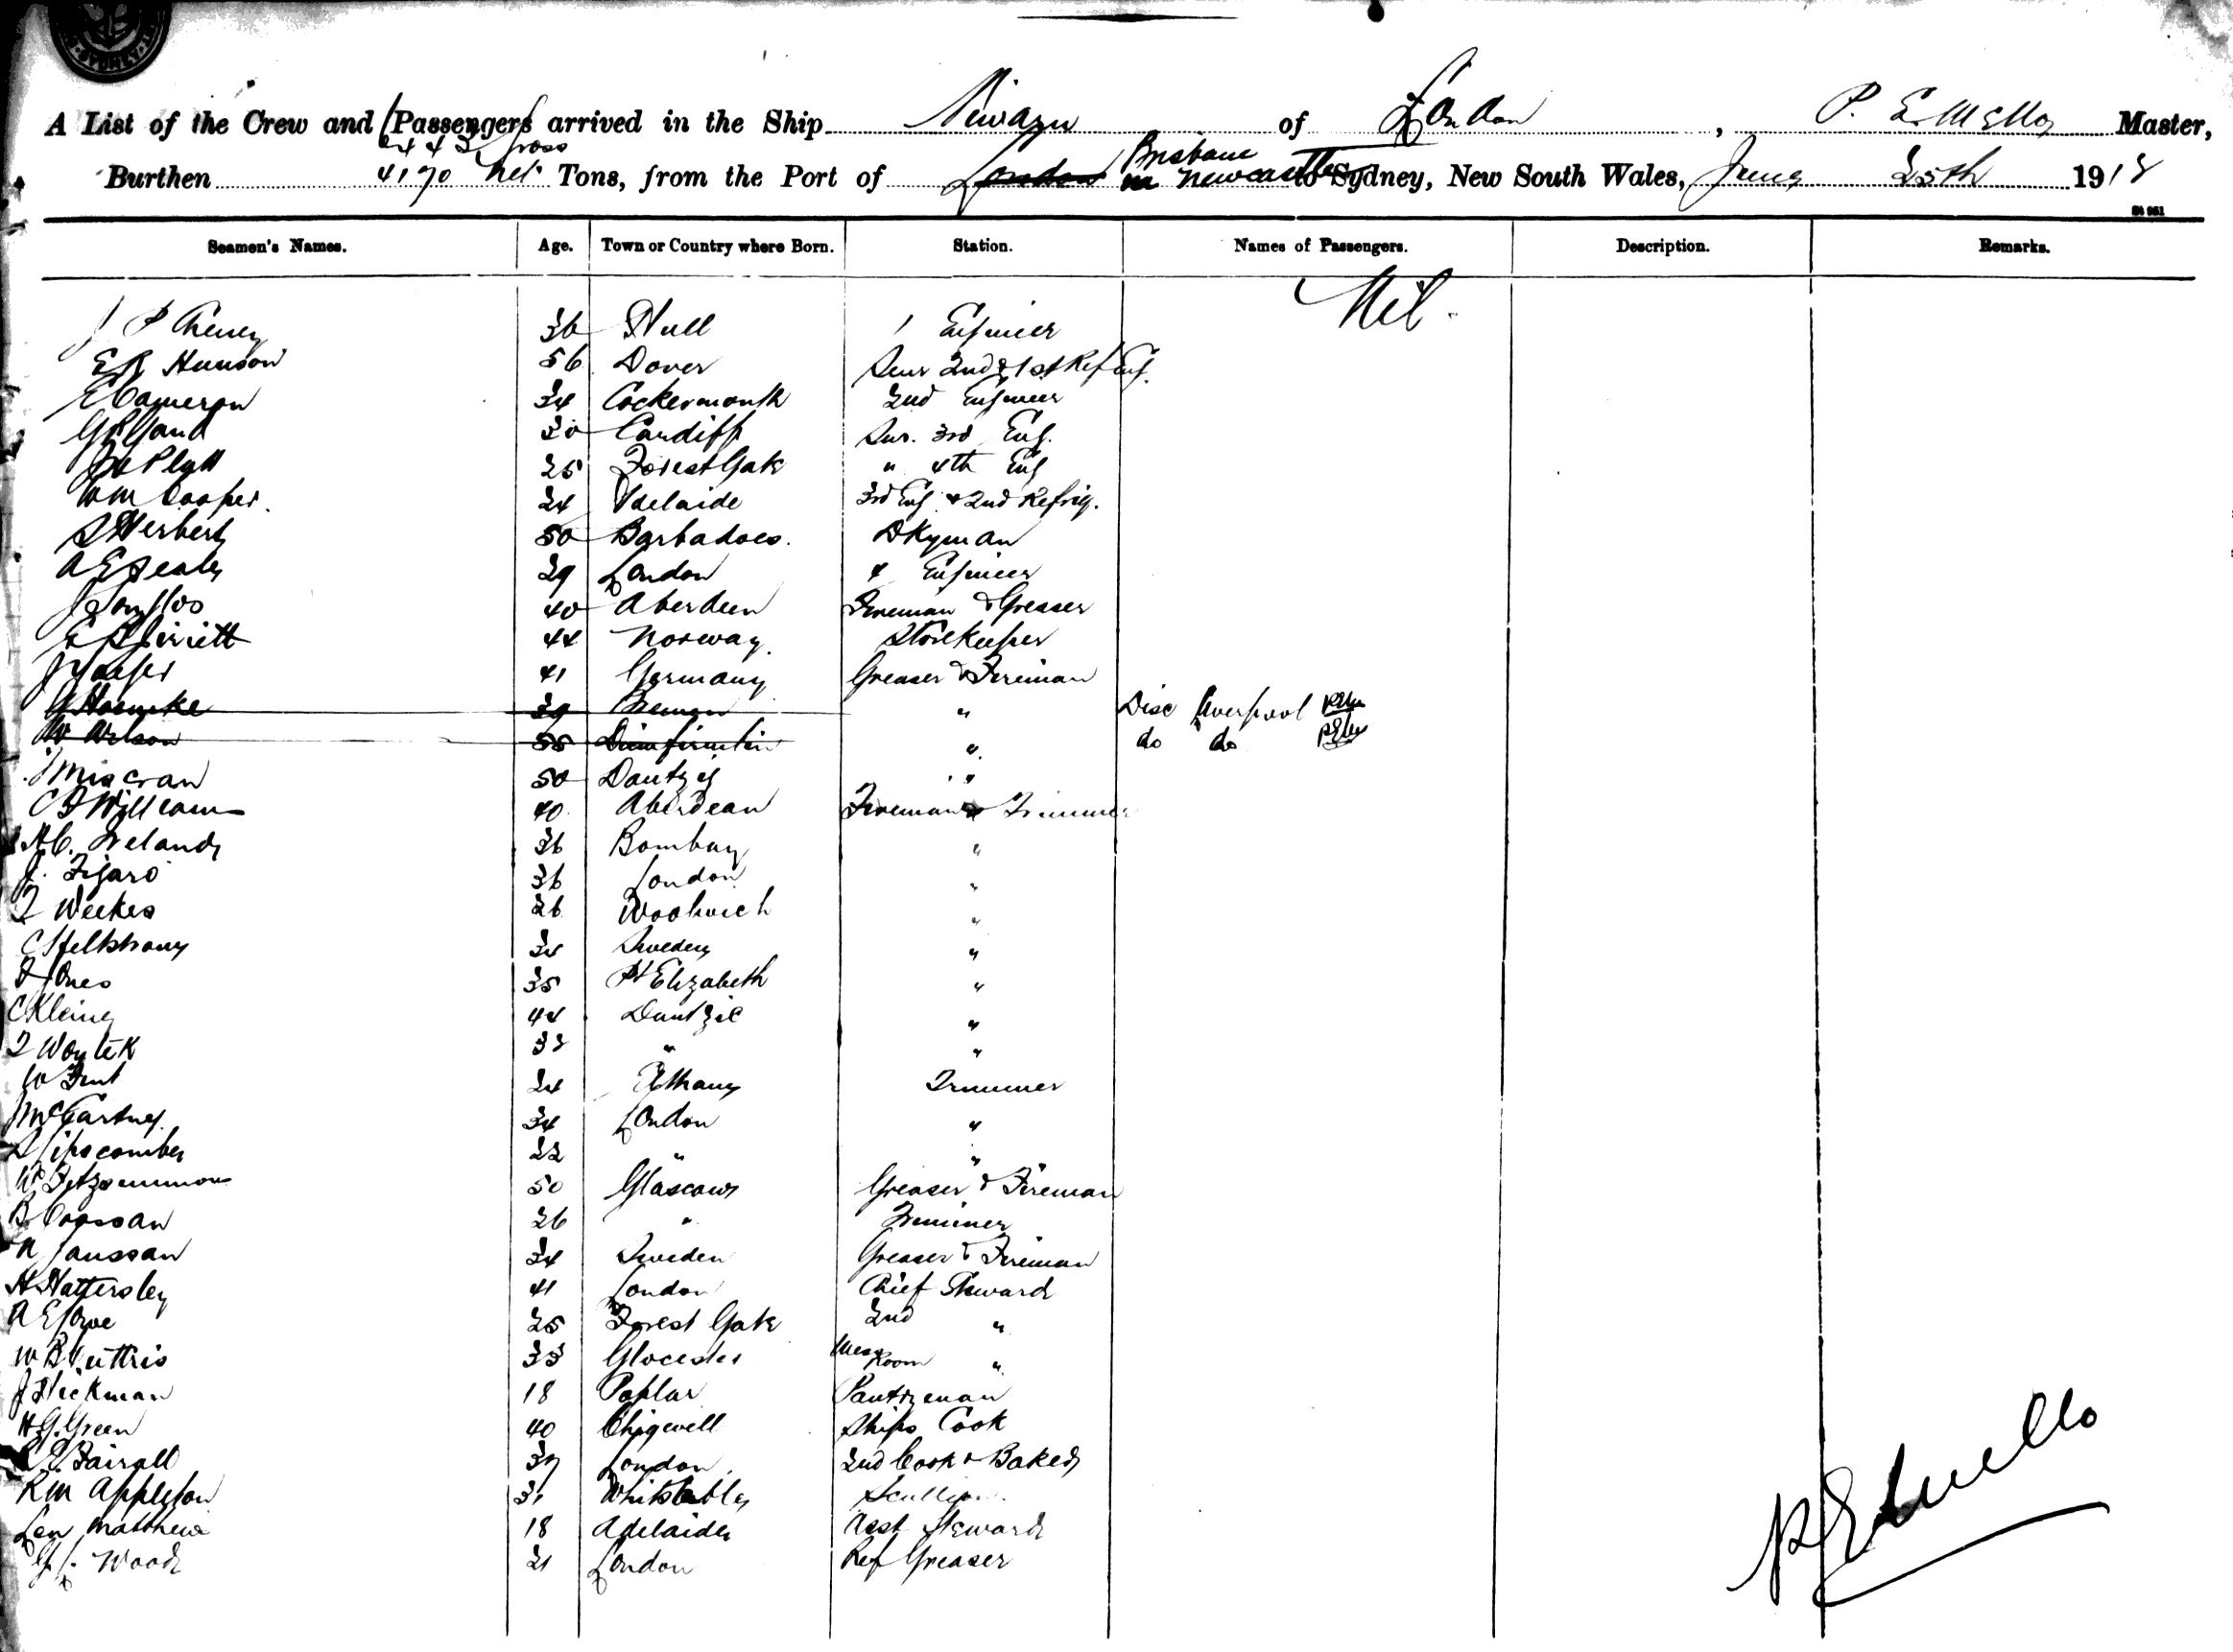 SYDNEY
A List of the Crew and Passengers arrived in the Ship of London, P. E. Master,
Gross
Burthen 4170 Net Tons, from the Port of London Brisbane Newcastle to Sydney, New South Wales, June 25th 191
Seamen's Names. Age. Town or Country where Born. Station. Names of Passengers. Description. Remarks.
Nil.
J P 36 Hull 1 Engineer
E R Hunson 56 Dover Senr 2nd & 1st Ref Eng.
E Cameron 34 Cockermouth 2nd Engineer
30 Cardiff Snr. 3rd Eng.
Platt 25 Forest Gate " 4th Eng
Wm Cooper. 24 Adelaide 3rd Eng & 2nd Refrig.
S Herbert 50 Barbadoes. Dkyman
A E 29 London 4 Engineer
40 Aberdeen Fireman & Greaser
44 Norway. Storekeeper
41 Germany Greaser & Fireman
39 Bremen " Disc Liverpool
W Wilson 55 " do do
50 Dantzig "
C F Williams 40 Aberdean Fireman & Trimmer
H C. Ireland 36 Bombay "
J. Figaro 36 London "
F Weekes 26 Woolwich "
34 Sweden "
F Jones 35 Pt Elizabeth "
C Kleing 44 Dantzic "
F Woytek 32 " "
W 24 Albany Trimmer
J McCartney. 34 London "
Lipscomber 22 " "
W Fitzsimmons 50 Glascow Greaser & Fireman
B 26 " Trimmer
A Janssan 34 Sweden Greaser & Fireman
H Hattersley 41 London Chief Steward
A E 25 Forest Gate 2nd "
W B 33 Glocester Mess Room "
J Hickman 18 Poplar Pantryman
H G. Green 40 Chigwell Ships Cook
Fairall 37 London 2nd Cook & Baker
R M Appleton 31 Whitstable Scullion
Len Matthews 18 Adelaide Asst Steward
Wood 21 London Ref Greaser